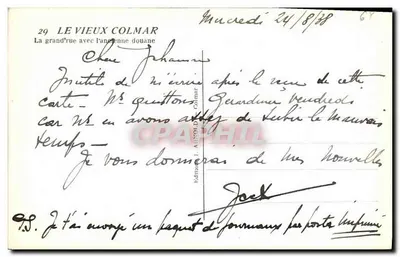 29 LE VIEUX COLMAR
La grand'rue avec l'ancienne douane
Mercredi 24/8/38
Cher Johannes
Inutile de m'écrire après le reçu de cette
carte - Ns quittons Guardeur, vendredi
car Ns en avons assez de subir le mauvais
temps -
Je vous donnerai de mes nouvelles
Jack
P.S. Je t'ai envoyé un paquet de journaux par poste imprimé